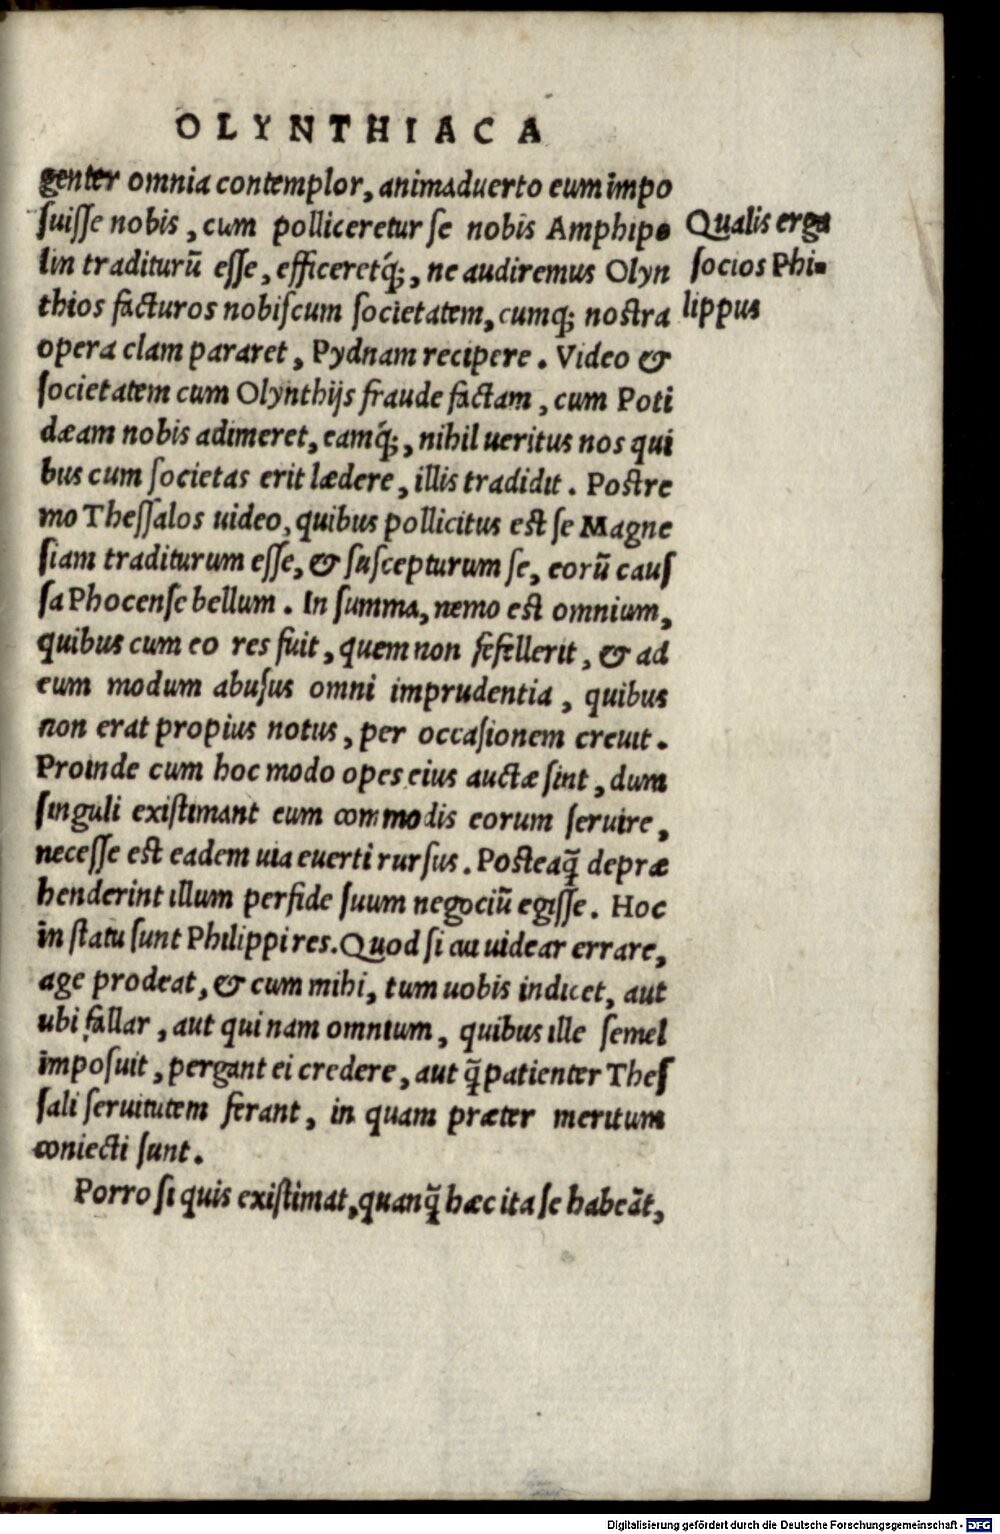 OLYNTHIACA
genter omnia contemplor, animaduerto eum impo
ſuiſſe nobis, cum polliceretur ſe nobis Amphipo
lin traditurũ eſſe, efficeretq́;, ne audiremus Olyn
thios facturos nobiſcum ſocietatem, cumq; noſtra
opera clam pararet, Pydnam recipere. Video &
ſocietatem cum Olynthijs fraude factam, cum Poti
dæam nobis adimeret, eamq́;, nihil ueritus nos qui
bus cum ſocietas erit lædere, illis tradidit. Poſtre
mo Theſſalos uideo, quibus pollicitus eſt ſe Magne
ſiam traditurum eſſe, & ſuſcepturum ſe, eorũ cauſ
ſa Phocenſe bellum. In ſumma, nemo eſt omnium,
quibus cum eo res fuit, quem non fefellerit, & ad
eum modum abuſus omni imprudentia, quibus
non erat propius notus, per occaſionem creuit.
Proinde cum hoc modo opes eius auctæ ſint, dum
ſinguli exiſtimant eum commodis eorum ſeruire,
neceſſe eſt eadem uia euerti rurſus. Poſteaq̃ depræ
henderint illum perfide ſuum negociũ egiſſe. Hoc
in ſtatu ſunt Philippi res. Quod ſi cui uidear errare,
age prodeat, & cum mihi, tum uobis indicet, aut
ubi fallar, aut qui nam omnium, quibus ille ſemel
impoſuit, pergant ei credere, aut q̃ patienter Theſ
ſali ſeruitutem ferant, in quam præter meritum
coniecti ſunt.
Porro ſi quis exiſtimat, quanq̃ hæc ita ſe habeãt,
Qualis erga
ſocios Phi-
lippus
Digitalisierung gefördert durch die Deutsche Forschungsgemeinschaft - DFG